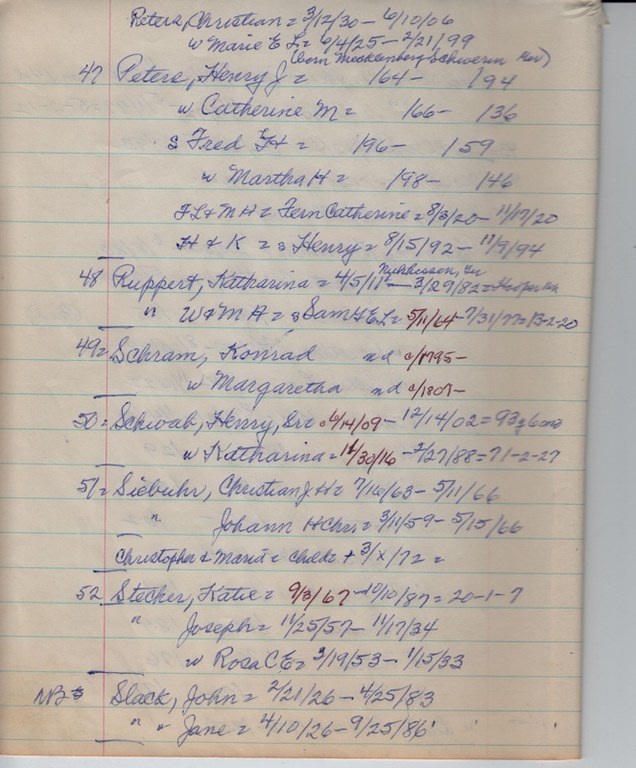 Peters, Christian = 3/12/30 - 6/10/06
w Marie E L = 6/4/25 - 2/21/99
(born Mecklenburg Schwerin Ger)
47 Peters, Henry J = 164- 194
w Catherine M = 166- 136
s Fred H = 196- 159
w Martha H = 198- 146
F L & M H = Fern Catherine = 8/3/20 - 11/17/20
H & K = s Henry = 8/15/92 - 11/9/94
48 Ruppert, Katharina = 4/5/11 - 3/29/82 =
" W & M A = s Sam & E L = 5/11/64 - 7/31/77 = 13-2-20
49 = Schram, Konrad nd c/1795-
w Margaretha nd c/1807-
50 = Schwab, Henry, Sr = 6/14/09 - 12/14/02 = 93 y 6 mo
w Katharina = 11/30/16 - 2/27/88 = 71-2-27
51 = Siebuhr, Christian J H = 7/16/63 - 5/11/66
" Johann H Chris = 3/11/59 - 5/15/66
Christopher & Maria = childr + 3/x/72 =
52 Stecher, Katie = 9/3/67 - 10/10/87 = 20-1-7
" Joseph = 11/25/57 - 11/17/34
w Rosa C E = 3/19/53 - 1/15/33
NB Slack, John = 2/21/26 - 4/25/83
" w Jane = 4/10/26 - 9/25/86